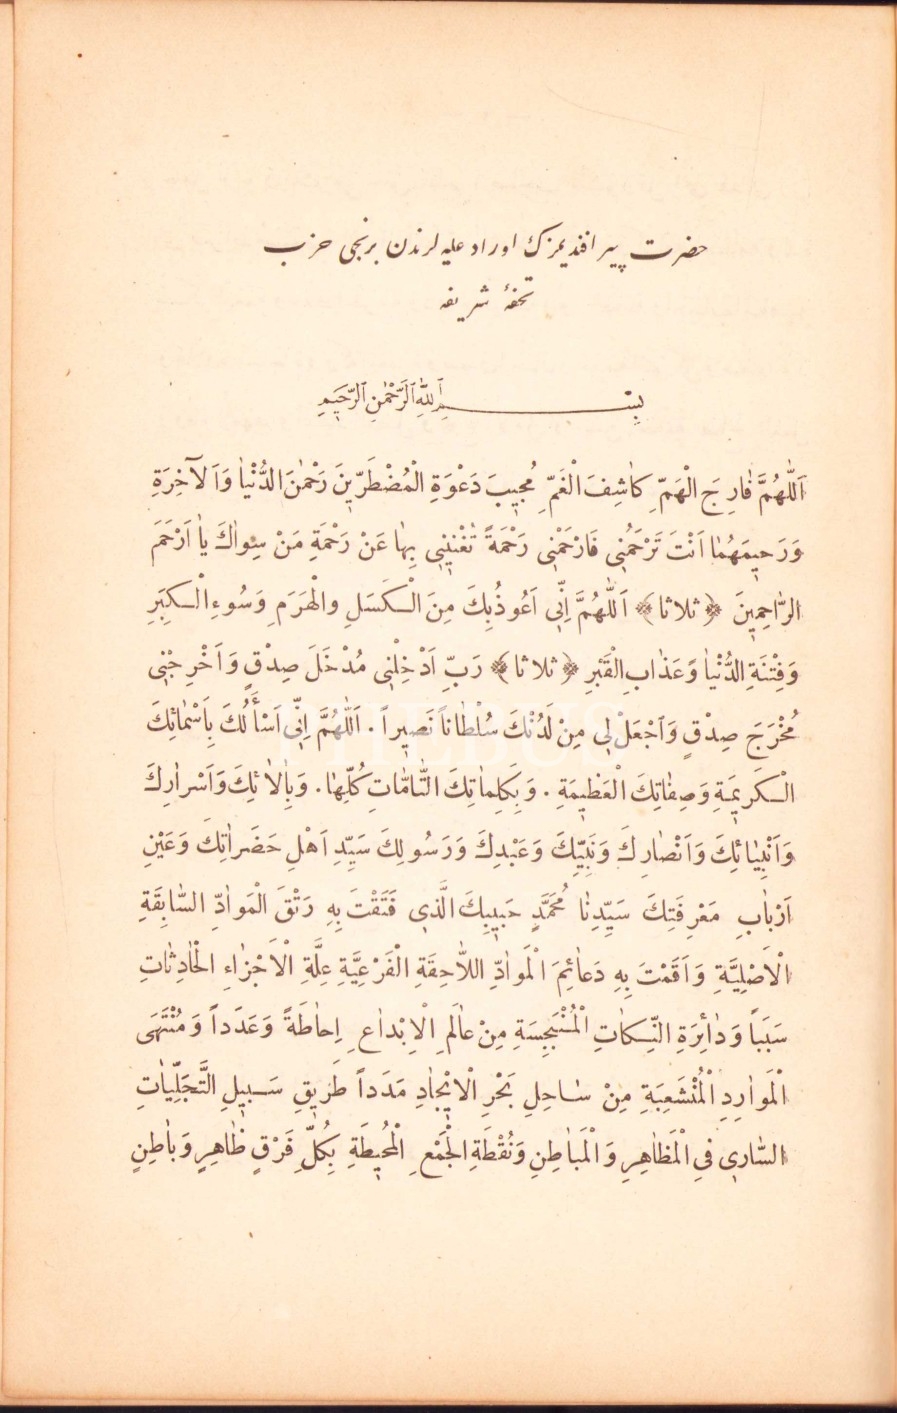 حضرت پير افنديمزك اوراد عليه لرندن برنجى حزب
تحفهٔ شريفه
بِسْــــمِ ٱللهِ ٱلرَّحْمٰنِ ٱلرَّحِيمِ
اَللّٰهُمَّ فَارِجَ الْهَمِّ كَاشِفَ الْغَمِّ مُجِيبَ دَعْوَةِ الْمُضْطَرِّينَ رَحْمٰنَ الدُّنْيَا وَاَلآخِرَةِ
وَرَحِيمَهُمَا اَنْتَ تَرْحَمُنِى فَارْحَمْنِى رَحْمَةً تُغْنِينِى بِهَا عَنْ رَحْمَةِ مَنْ سِوَاكَ يَا اَرْحَمَ
الرَّاحِمِينَ ﴿ ثلاثا ﴾ اَللّٰهُمَّ اِنِّى اَعُوذُبِكَ مِنَ الْكَسَلِ والْهَرَمِ وَسُوءِ الْكِبَرِ
وَفِتْنَةِ الدُّنْيَا وَعَذَابِ الْقَبْرِ ﴿ ثلاثا ﴾ رَبِّ اَدْخِلْنِى مُدْخَلَ صِدْقٍ وَاَخْرِجْنِى
مُخْرَجَ صِدْقٍ وَاجْعَلْ لِى مِنْ لَدُنْكَ سُلْطَاناً نَصِيراً . اَللّٰهُمَّ اِنِّى اَسْأَلُكَ بِاَسْمَائِكَ
الْكَرِيمَةِ وَصِفَاتِكَ الْعَظِيمَةِ . وَبِكَلِمَاتِكَ التَّامَّاتِ كُلِّهَا . وَبِالَائِكَ وَاَسْرَارِكَ
وَاَنْبِيَائِكَ وَاَنْصَارِكَ وَنَبِيِّكَ وَعَبْدِكَ وَرَسُولِكَ سَيِّدِ اَهْلِ حَضَرَاتِكَ وَعَيْنِ
اَرْبَابِ مَعْرِفَتِكَ سَيِّدِنَا مُحَمَّدٍ حَبِيبِكَ الَّذِى فَتَقْتَ بِهِ رَتْقَ الْمَوَادِّ السَّابِقَةِ
الْاَصْلِيَّةِ وَاَقَمْتَ بِهِ دَعَائِمَ الْمَوَادِّ اللَّاحِقَةِ الْفَرْعِيَّةِ عِلَّةِ الْاَجْزَاءِ الْحَادِثَاتِ
سَبَباً وَدَائِرَةِ النِّكَاتِ الْمُنْبَجِسَةِ مِنْ عَالَمِ الْاِبْدَاعِ اِحَاطَةً وَعَدَداً وَمُنْتَهَى
الْمَوَارِدِ الْمُنْشَعِبَةِ مِنْ سَاحِلِ بَحْرِ الْاِيْجَادِ مَدَداً طَرِيقِ سَبِيلِ التَّجَلِّيَاتِ
السَّارِى فِى الْمَظَاهِرِ وَالْمَبَاطِنِ وَنُقْطَةِ الْجَمْعِ الْمُحِيطَةِ بِكُلِّ فَرْقٍ ظَاهِرٍ وَبَاطِنٍ